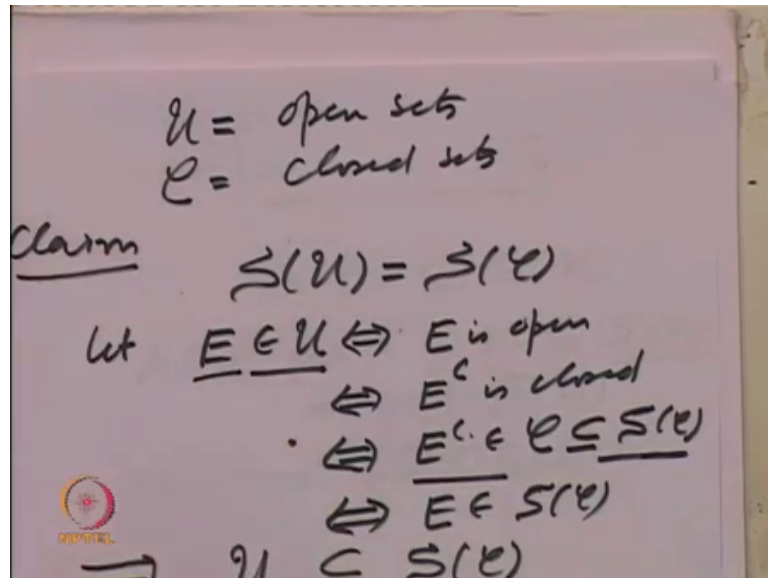 𝒰 = open sets
𝒞 = closed sets
Claim
S(𝒰) = S(𝒞)
let E ∈ 𝒰 ⇔ E is open
⇔ E^c is closed
⇔ E^c ∈ 𝒞 ⊆ S(𝒞)
⇔ E ∈ S(𝒞)
⇒ 𝒰 ⊆ S(𝒞)
NPTEL